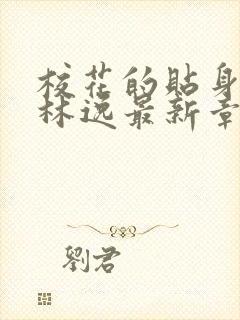 校花的貼身
林逸最新章
劉君